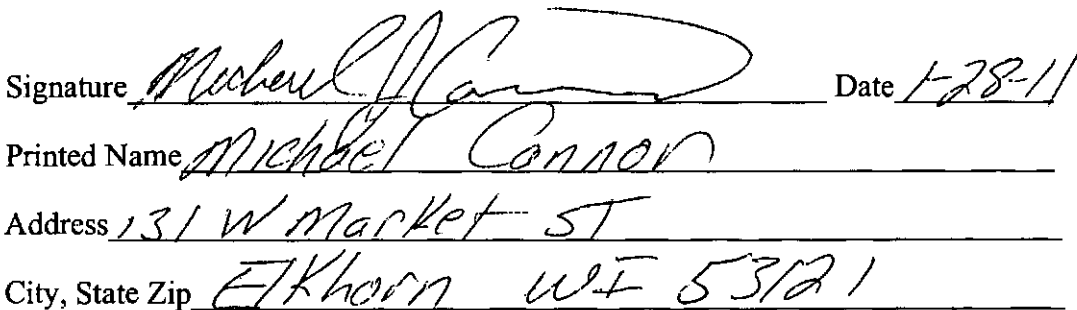 Signature Michael J Cannon Date 1-28-11
Printed Name Michael Cannon
Address 131 W Market ST
City, State Zip Elkhorn WI 53121